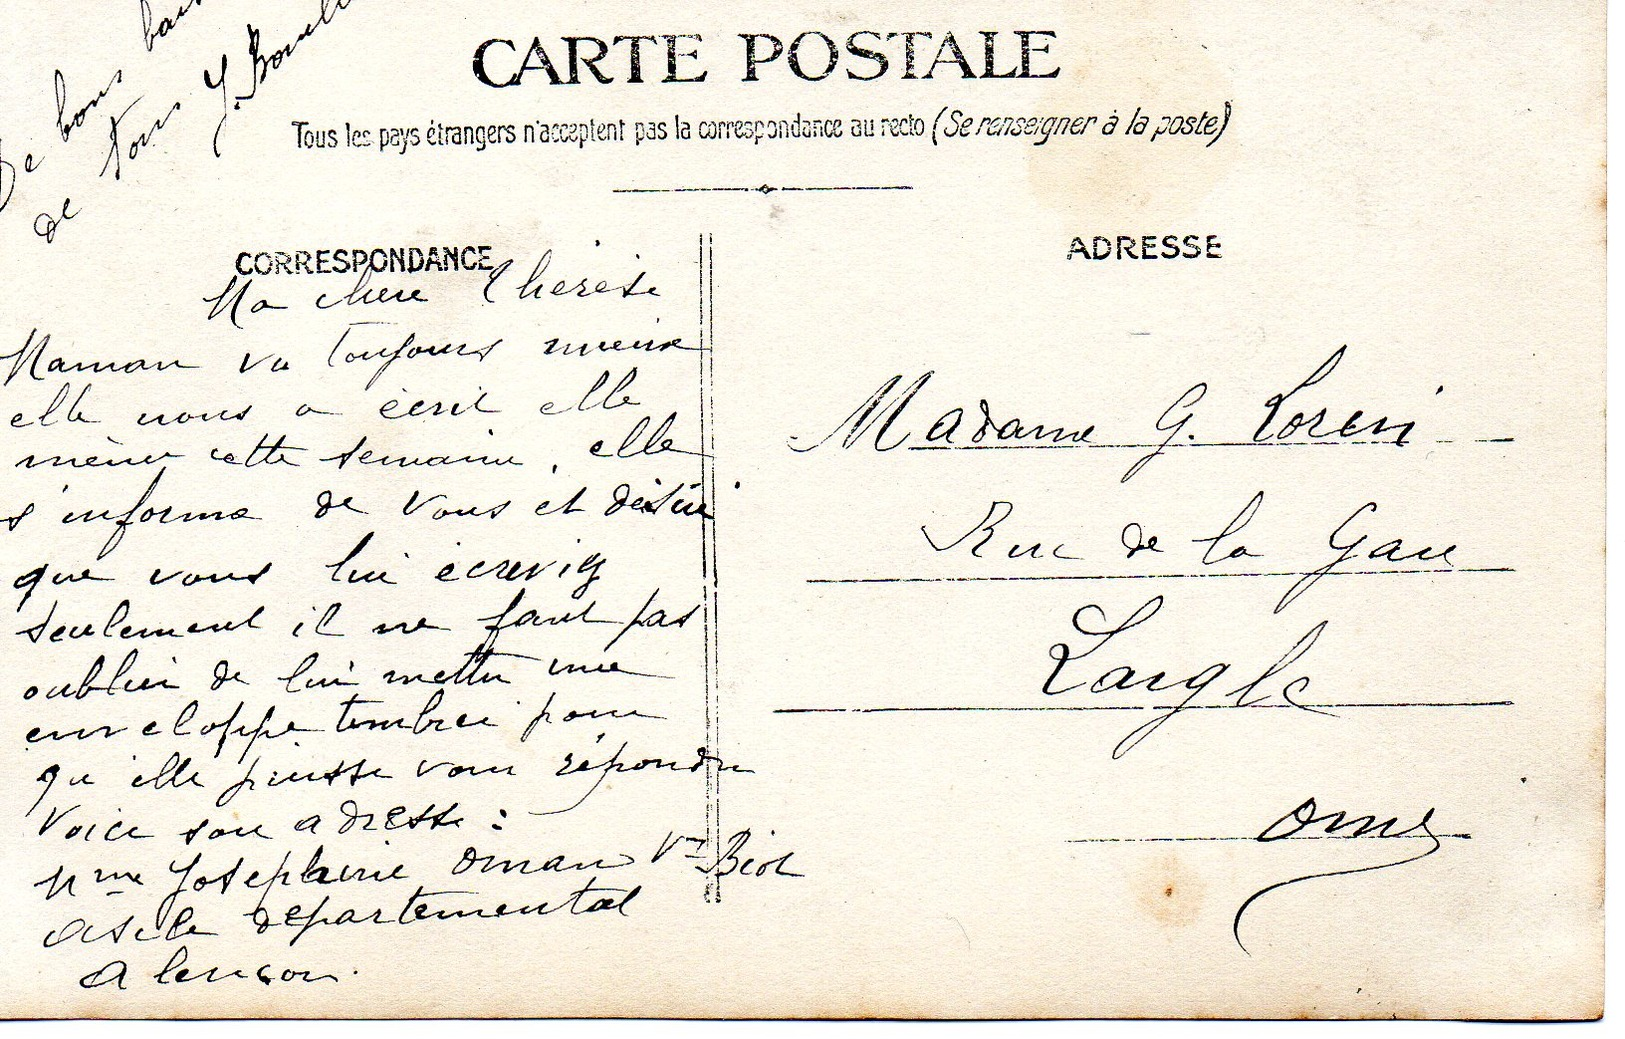 De bons
de tous J.
CARTE POSTALE
Tous les pays étrangers n'acceptent pas la correspondance au recto (Se renseigner à la poste)
CORRESPONDANCE
Ma chere Thérèse
Maman va toujours mieux
elle nous a écrit elle
même cette semaine, elle
s'informe de vous et désire
que vous lui écreviez
seulement il ne faut pas
oublier de lui mettre une
enveloppe timbrée pour
qu'elle puisse vous répondre
Voici son adresse :
Mme Josephine Oman Vve Biot
Asile départemental
Alençon.
ADRESSE
Madame G.
Rue de la Gare
Laigle
Orne